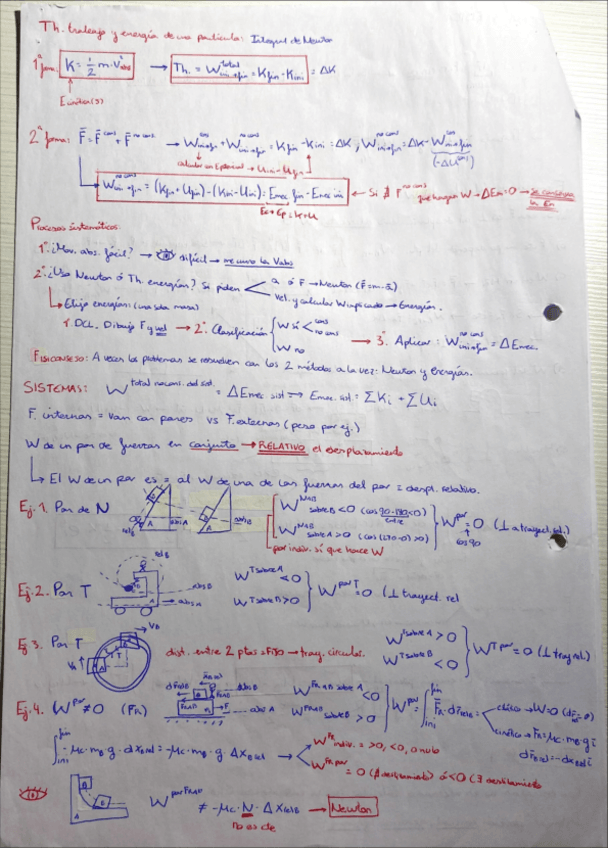 Th. trabajo y energía de una partícula: Integral de Newton
1ª forma: K = 1/2 m·v²abs → Th. = W total ini→fin = Kfin - Kini = ΔK
E cinética (J)
2ª forma: F = F cons + F no cons → W cons ini→fin + W no cons ini→fin = Kfin - Kini = ΔK ; W no cons ini→fin = ΔK - W cons ini→fin
(-ΔU cons)
calcular con Epotencial → Uini - Ufin
W no cons ini→fin = (Kfin + Ufin) - (Kini - Uini) = Emec fin - Emec ini ← Si ∄ F no cons que hagan W → ΔEm = 0 → se conserva la Em
Ec + Ep = K + U
Procesos sistemáticos:
1º ¿Mov. abs. fácil? → difícil → me curro la Vabs
2º ¿Uso Newton ó Th. energías? Si piden a ó F → Newton (F = m·a)
vel. y calcular W aplicado → Energías.
Elijo energías: (una sola masa)
1º DCL. Dibujo F y vel → 2º Clasificación W sí < cons no cons
W no
→ 3º Aplicar: W no cons ini→fin = ΔEmec.
FISICONSEJO: A veces los problemas se resuelven con los 2 métodos a la vez: Newton y Energías.
SISTEMAS: W total no cons. del sist. = ΔEmec sist → Emec. sist = ΣKi + ΣUi
F. internas = van con pares vs F. externas (peso por ej.)
W de un par de fuerzas en conjunto → RELATIVO el desplazamiento
El W de un par es = al W de una de las fuerzas del par = despl. relativo.
Ej. 1. Par de N
B A rel B abs A B A abs B
W NAB sobre B < 0 (cos 90-180 < 0)
W NAB sobre A > 0 (cos (270-0) > 0)
por indiv. sí que hace W
W par = 0 (⊥ a trayect. rel.)
cos 90
Ej. 2. Par T
rel B abs B abs A
W T sobre A < 0
W T sobre B > 0
W par T = 0 (⊥ trayect. rel
Ej 3. Par T
VB T T B A VA
dist. entre 2 ptos = FIJO → tray. circular.
W T sobre A > 0
W T sobre B < 0
W T par = 0 (⊥ tray rel.)
Ej. 4. W par ≠ 0 (FR)
abs B FRAB F abs A
W FR AB sobre A < 0
W FR AB sobre B > 0
W par = ∫ini fin FR · drel B
W = 0
FR = μc · mB · g
∫ini fin -μc · mB · g · dxB rel = -μc · mB · g · ΔxB rel → W FR indiv. = >0, <0, 0 nulo
W FR par = 0 (∄ deslizamiento) ó <0 (∃ deslizamiento
B B A
W par FR AB ≠ -μc · N · Δx rel B → Newton
no es cte